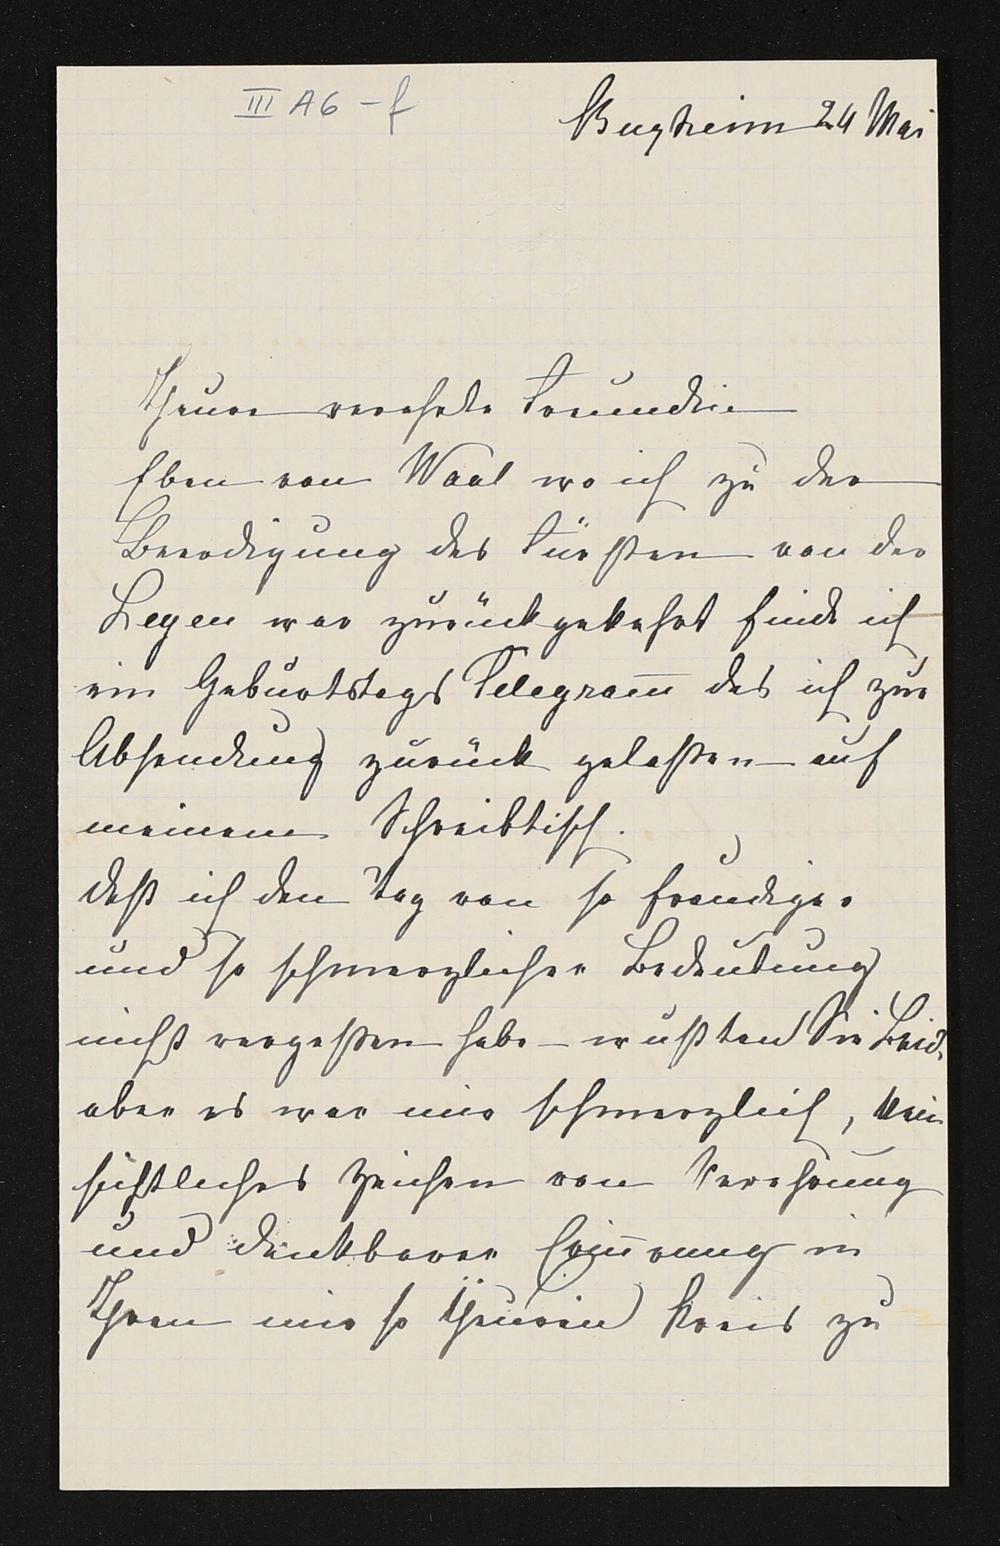 III A6 - f
Buxheim 24 Mai
Theure verehrte Freundin
Eben von Waal wo ich zu der
Beerdigung des Fürsten von der
Leyen war zurückgekehrt finde ich
ein Geburtstags Telegram̅ das ich zur
Absendung zurück gelaßen auf
meinem Schreibtisch.
Daß ich den Tag von so freudiger
und so schmerzlicher Bedeutung
nicht vergeßen habe – wußten Sie Beide
aber es war mir schmerzlich, kein
sichtliches Zeichen von Verehrung
und dankbarer Erin̅erung in
Ihren mir so theuren Kreis zu